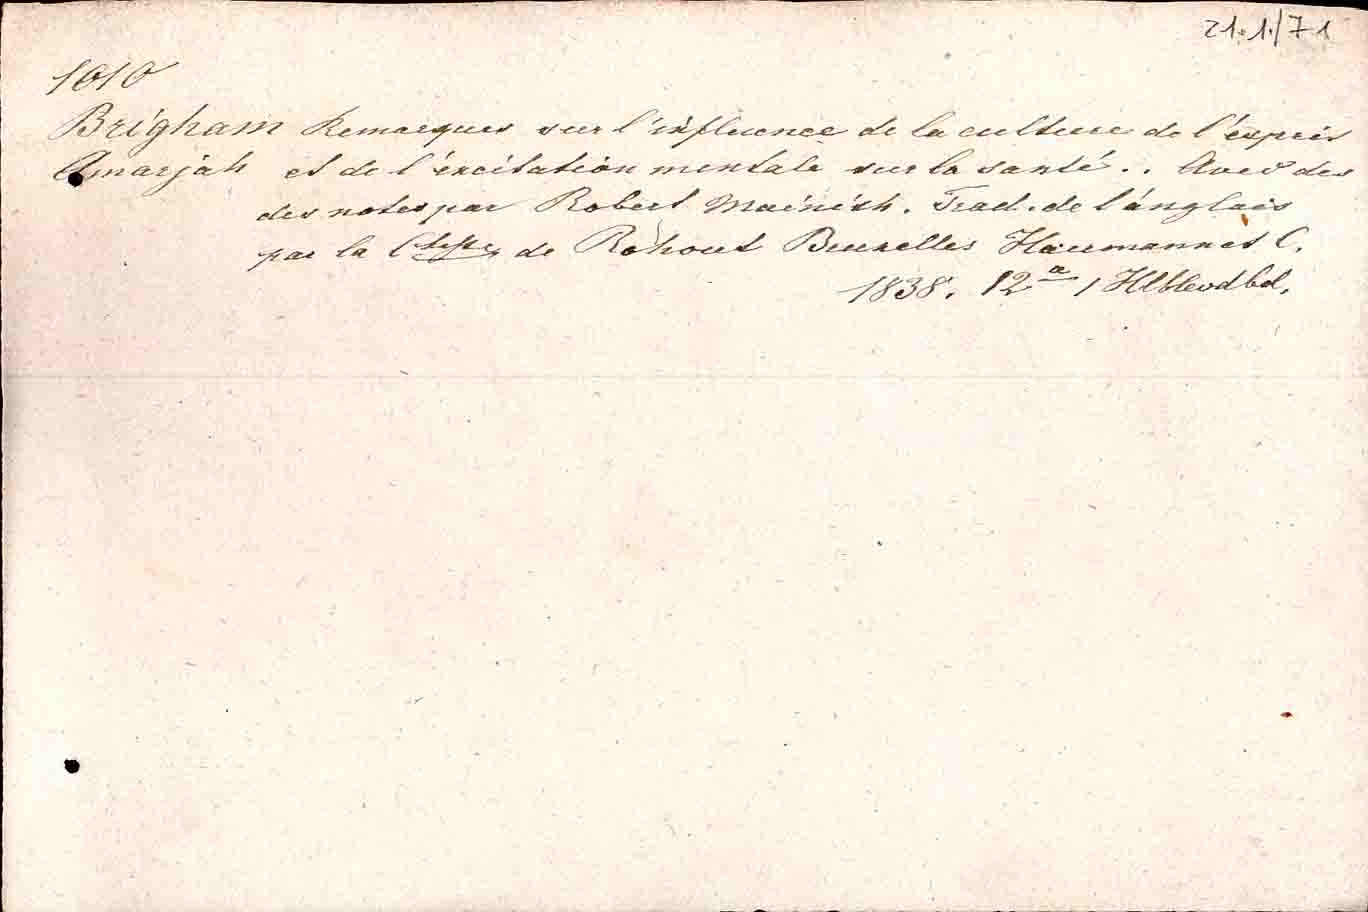 21.1./71
1010
Brigham Remarques sur l'influence de la culture de l'esprit
Amarjah et de l'éxcitation mentale sur la santé.. Avec des
des notes par Robert Macnish. Trad. de l'anglais
par la de Rohout Bruxelles Haumann et C.
1838. 12° , Hlblewdbd.